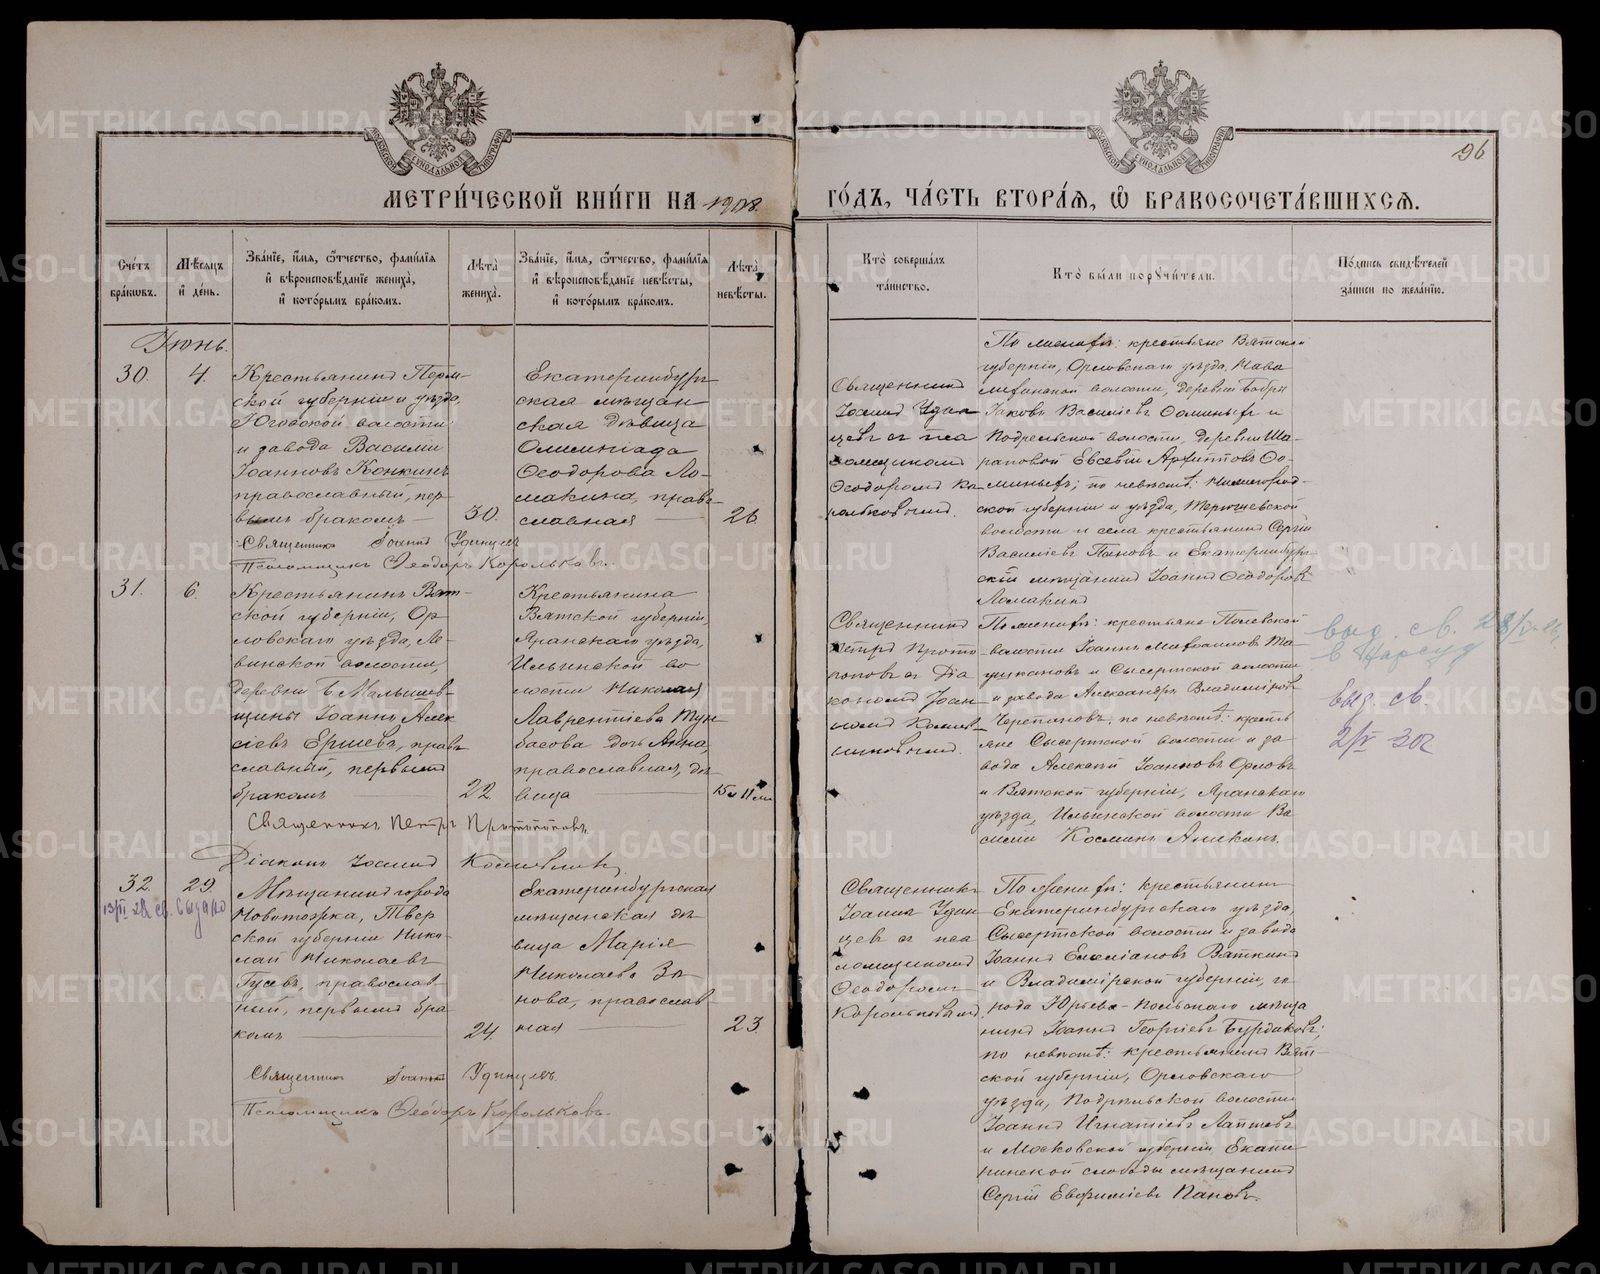 МЕТРИ́ЧЕСКОЙ КНИ́ГИ НА 1908.
ГО́ДЪ, ЧА́СТЬ ВТОРА́Я, Ѡ БРАКОСОЧЕТА́ВШИХСЯ.
96
Сче́тъ бра́ковъ.
Мѣ́сяцъ и де́нь.
Зва́нїе, и́мя, ѻ҆́тчество, фами́лїя
и вѣроисповѣ́данїе жениха̀,
и кото́рымъ бра́комъ.
Лѣ́та жениха̀.
Зва́нїе, и́мя, ѻ҆́тчество, фами́лїя
и вѣроисповѣ́данїе невѣ́сты,
и кото́рымъ бра́комъ.
Лѣ́та невѣ́сты.
Кто̀ соверша́лъ
та́инство.
Кто̀ бы́ли порꙋчи́тели.
По́дпись свидѣ́телей
за́писи по жела́нїю.
Іюнь.
30.
4.
Крестьянинъ Перм-
ской губерніи и уѣзда,
Юговской волости
и завода Василій
Іоанновъ Конкинъ
православный, пер-
вымъ бракомъ —
30.
Екатеринбург
ская мѣщан
ская дѣвица
Олимпіада
Ѳеодорова Ло-
макина, право-
славная —
26
Священникъ
Іоаннъ Удин
цевъ съ пса
ломщикомъ
Ѳеодоромъ Ко
рольковымъ.
По жениху: крестьяне Вятской
губерніи, Орловскаго уѣзда,
волости, деревни Бобры
Іаковъ Василіевъ Ѳоминыхъ и
Подрельской волости, деревни Ша-
раповой Евсевій Архипповъ Ѳо-
миныхъ; по невѣстѣ: Нижегород-
ской губерніи и уѣзда, Терюшевской
волости и села крестьянинъ Сергій
Василіевъ Пановъ и Екатеринбург-
скій мѣщанинъ Іоаннъ Ѳеодоровъ
Ломакинъ
Священникъ Іоаннъ Удинцевъ
Псаломщикъ Ѳеодоръ Корольковъ.
31.
6.
Крестьянинъ Вят-
ской губерніи, Ор-
ловскаго уѣзда, Ле-
винской волости,
деревни
Іоаннъ Алек
сіевъ Ершевъ, право
славный, первымъ
бракомъ —
22.
Крестьянина
Вятской губерніи,
Яранскаго уѣзда,
Ильинской во
лости Николая
Лаврентіева Тун
басова дочь Анна,
православная, дѣ-
вица —
15 л 11 м
Священникъ
Петръ Прото
поповъ съ Діа
кономъ Іоан
номъ
По жениху: крестьяне Полевской
волости Іоаннъ
и Сысертской волости
и завода Александръ Владиміровъ
Черепановъ; по невѣстѣ: кресть
яне Сысертской волости и за
вода Алексій Іоанновъ Орловъ
и Вятской губерніи, Яранскаго
уѣзда, Ильинской волости Ва
силій Космин
выд. св.
в Нарсуд
выд. св.
2/V 30г
Священникъ Петръ Протопоповъ.
Діаконъ Іоаннъ
32.
29.
13/VI 28 св. выдано
Мѣщанинъ города
Новоторжка, Твер
ской губерніи Нико-
лай Николаевъ
Гусевъ, православ-
ный, первымъ бра
комъ —
24.
Екатеринбургская
мѣщанская дѣ-
вица Марія
Николаева Зы
нова, православ-
ная —
23
Священникъ
Іоаннъ Удин
цевъ съ пса
ломщикомъ
Ѳеодоромъ
Корольковымъ
По жениху: крестьянинъ
Екатеринбургскаго уѣзда,
Сысертской волости и завода
Іоаннъ Емеліановъ Вяткинъ
и Владимірской губерніи, го
рода Юрьева-Польскаго мѣща
нинъ Іоаннъ Георгіевъ Бурдаковъ;
по невѣстѣ: крестьянинъ Вят-
ской губерніи, Орловскаго
уѣзда, Подрельской волости
Іоаннъ Игнатіевъ Лаптевъ
и Московской губерніи Екате
рининской слободы мѣщанинъ
Сергій Евфиміевъ Пановъ.
Священникъ Іоаннъ Удинцевъ.
Псаломщикъ Ѳеодоръ Корольковъ.
METRIKI.GASO-URAL.RU